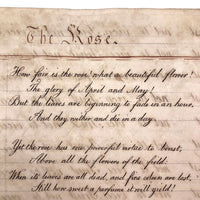 The Rose.
How fair is the rose! what a beautiful flower!
The glory of April and May!
But the leaves are beginning to fade in an hour,
And they wither and die in a day.
Yet the rose has one powerful virtue to boast,
Above all the flowers of the field.
When its leaves are all dead, and fine colours are lost,
Still how sweet a perfume it will yield!